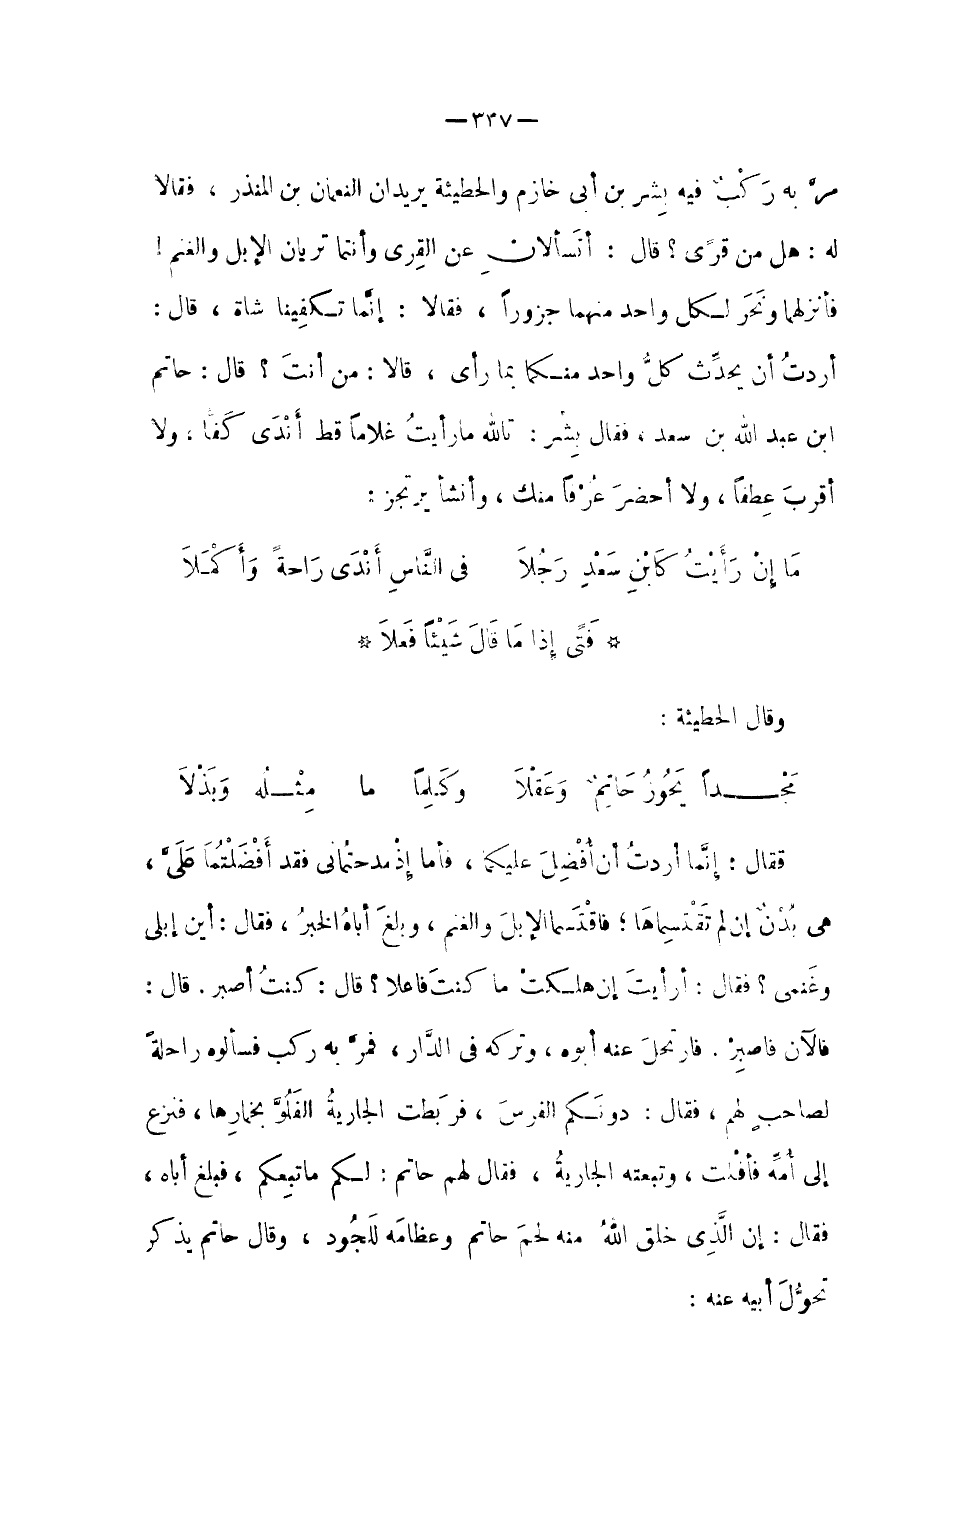 — ٣٤٧ —
مرَّ به رَكْبٌ فيه بِشر بن أبى خازم والحطيئة يريدان النعمان بن المنذر ، فقالا
له : هل من قرًى ؟ قال : أتَسألانِ عن القِرى وأنتما تريان الإبل والغنم !
فأنزلهما ونَحَر لكل واحد منهما جزوراً ، فقالا : إنَّما تكفِينا شاة ، قال :
أردتُ أن يحدِّث كلُّ واحد منكما بما رأى ، قالا : من أنتَ ؟ قال : حاتم
ابن عبد الله بن سعد ، فقال بِشْر : تالله مارأيتُ غلاماً قط أَنْدَى كَفًّا ، ولا
أقربَ عِطفاً ، ولا أحضرَ عُرْفاً منك ، وأنشأ يرتجز :
مَا إِنْ رَأَيْتُ كَابْنِ سَعْدٍ رَجُلاَ فى النَّاسِ أَنْدَى رَاحةً وَأَكْمَلاَ
* فَتًى إِذا مَا قَالَ شَيْئاً فَعلاَ *
وقال الحطيئة :
مَجْداً يَحُوزُ حَاتِمٌ وَعَقلاَ وكَلِمًا ما مِثْلُه وَبَذْلاَ
فقال : إِنَّما أردتُ أن أُفْضِلَ عليكما ، فأما إذْ مدحتمانى فقد أَفْضَلْتُمَا عَلَىَّ ،
هى بُدْنٌ إن لم تَقْتسِماهَا ؛ فاقْتَسما الإبلَ والغنم ، وبلغَ أباهُ الخبرُ ، فقال : أين إبلى
وغَنمى ؟ فقال : أرأيتَ إن هلكتْ ما كنتَ فاعلا ؟ قال : كنتُ أصبر . قال :
فالآن فاصبِرْ . فارتحلَ عنه أبوه ، وتركه فى الدَّار ، فمرَّ به ركب فسألوه راحلةً
لصاحبٍ لهم ، فقال : دونَكم الفرسَ ، فرَبطت الجاريةُ الفَلُوَّ بخمارِها ، فنزع
إلى أُمِّه فأفْلت ، وتبعته الجاريةُ ، فقال لهم حاتم : لكم ماتبِعكم ، فبلغ أباه ،
فقال : إن الَّذِى خلق اللهُ منه لحمَ حاتم وعظامَه لَلجُود ، وقال حاتم يذكر
تحوُّلَ أبيه عنه :